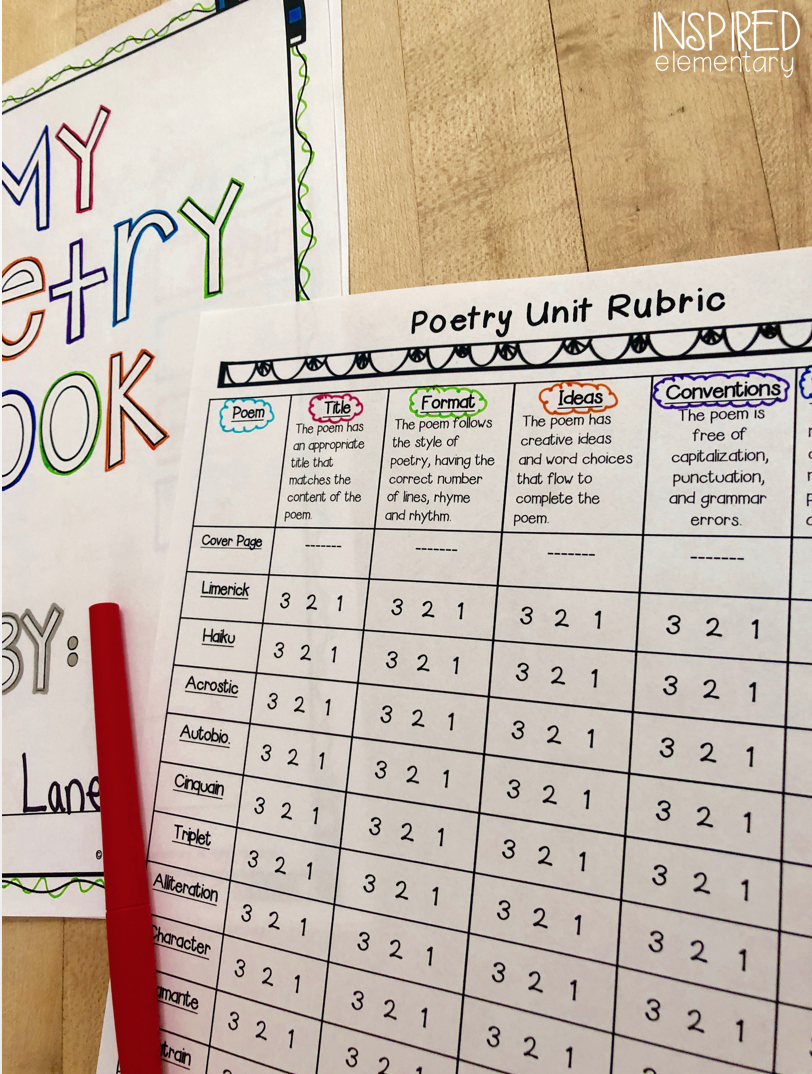 INSPIRED
elementary
MY
etry
OOK
BY:
Lane
©
Poetry Unit Rubric
Poem
Title
The poem has
an appropriate
title that
matches the
content of the
poem.
Format
The poem follows
the style of
poetry, having the
correct number
of lines, rhyme
and rhythm.
Ideas
The poem has
creative ideas
and word choices
that flow to
complete the
poem.
Conventions
The poem is
free of
capitalization,
punctuation,
and grammar
errors.
Cover Page ------- ------- ------- -------
Limerick 3 2 1 3 2 1 3 2 1 3 2 1
Haiku 3 2 1 3 2 1 3 2 1 3 2 1
Acrostic 3 2 1 3 2 1 3 2 1 3 2 1
Autobio. 3 2 1 3 2 1 3 2 1 3 2 1
Cinquain 3 2 1 3 2 1 3 2 1 3 2 1
Triplet 3 2 1 3 2 1 3 2 1 3 2 1
Alliteration 3 2 1 3 2 1 3 2 1 3 2 1
Character 3 2 1 3 2 1 3 2 1 3 2 1
amante 3 2 1 3 2 1 3 2 1
train